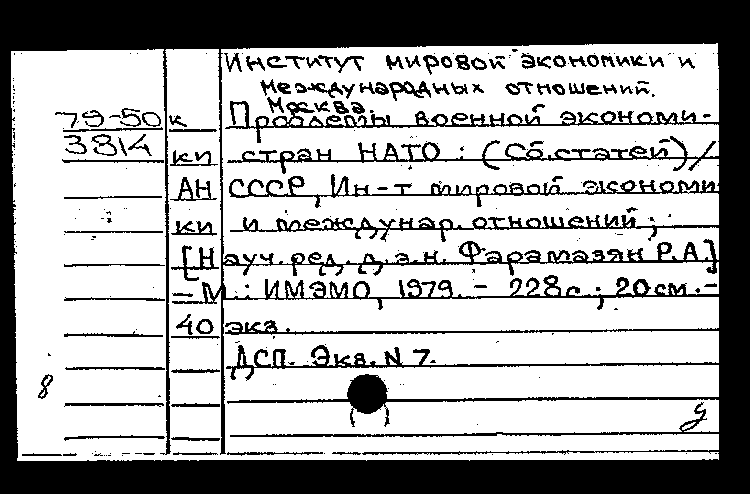 Институт мировой экономики и
международных отношений.
Москва.
79-50к Проблемы военной экономи-
3814 ки стран НАТО : (Сб.статей) /
АН СССР, Ин-т мировой экономи
ки и междунар. отношений ;
[Науч. ред. д.э.н. Фарамазян Р.А.]
– М. : ИМЭМО, 1979. – 228с. ; 20см.–
40 экз.
ДСП. Экз. N 7.
8